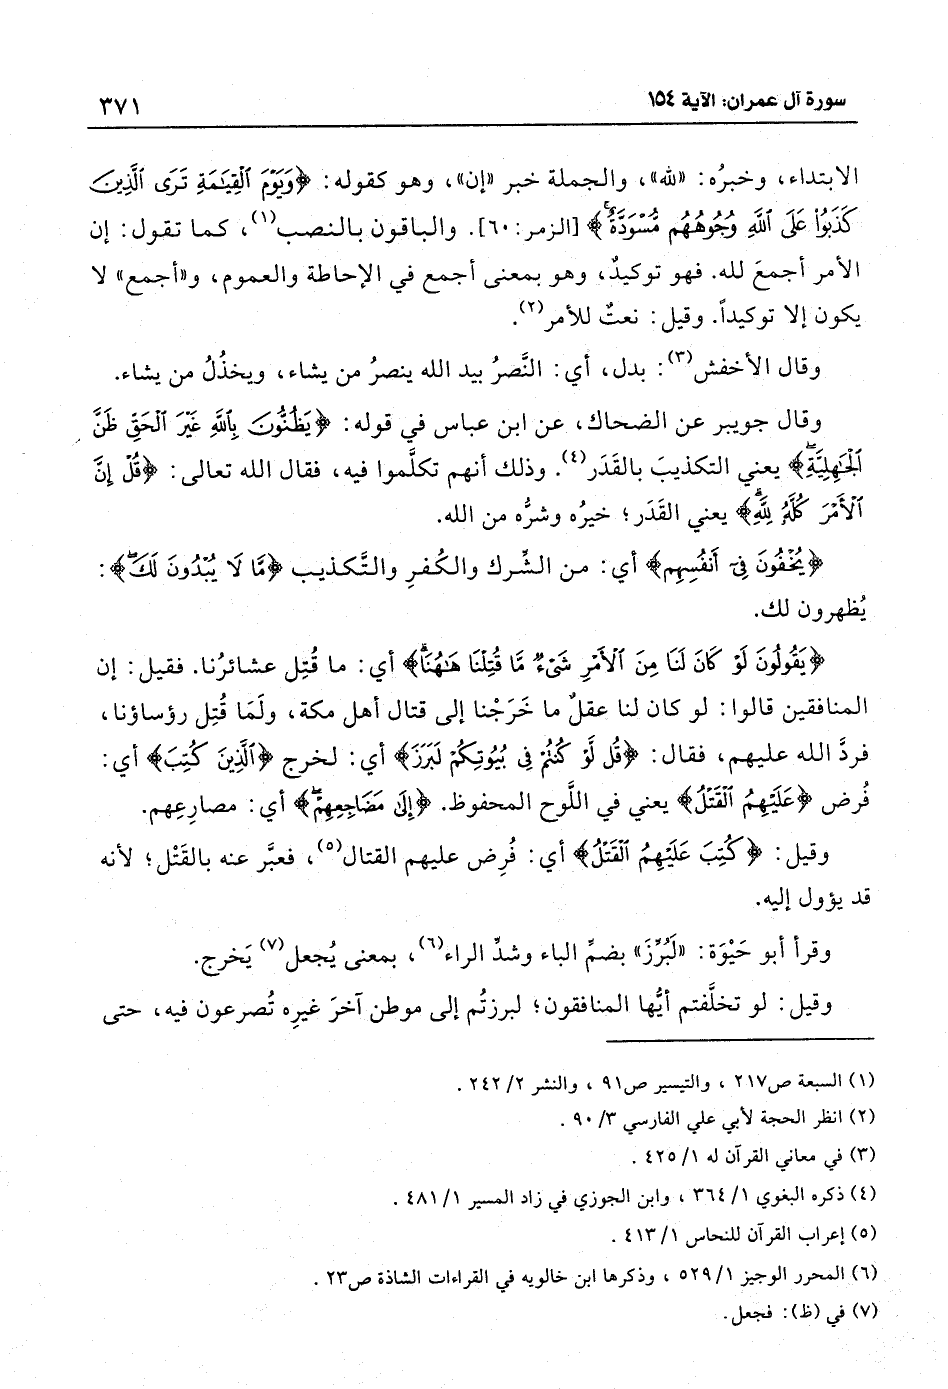 سورة آل عمران: الآية ١٥٤
٣٧١
الابتداء، وخبرُه: «لله»، والجملة خبر «إن»، وهو كقوله: ﴿وَيَوْمَ ٱلْقِيَٰمَةِ تَرَى ٱلَّذِينَ
كَذَبُوا۟ عَلَى ٱللَّهِ وُجُوهُهُم مُّسْوَدَّةٌ ۚ﴾ [الزمر: ٦٠]. والباقون بالنصب(١)، كما تقول: إن
الأمر أجمعَ لله. فهو توكيدٌ، وهو بمعنى أجمع في الإحاطة والعموم، و«أجمع» لا
يكون إلا توكيداً. وقيل: نعتٌ للأمر(٢).
وقال الأخفش(٣): بدل، أي: النَّصرُ بيد الله ينصرُ من يشاء، ويخذُلُ من يشاء.
وقال جويبر عن الضحاك، عن ابن عباس في قوله: ﴿يَظُنُّونَ بِٱللَّهِ غَيْرَ ٱلْحَقِّ ظَنَّ
ٱلْجَٰهِلِيَّةِ ۖ﴾ يعني التكذيبَ بالقَدَر(٤). وذلك أنهم تكلَّموا فيه، فقال الله تعالى: ﴿قُلْ إِنَّ
ٱلْأَمْرَ كُلَّهُۥ لِلَّهِ ۗ﴾ يعني القَدَر؛ خيرُه وشرُّه من الله.
﴿يُخْفُونَ فِىٓ أَنفُسِهِم﴾ أي: من الشِّرك والكُفرِ والتَّكذيب ﴿مَّا لَا يُبْدُونَ لَكَ ۖ﴾:
يُظهرون لك.
﴿يَقُولُونَ لَوْ كَانَ لَنَا مِنَ ٱلْأَمْرِ شَىْءٌ مَّا قُتِلْنَا هَٰهُنَا ۗ﴾ أي: ما قُتِل عشائرُنا. فقيل: إن
المنافقين قالوا: لو كان لنا عقلٌ ما خَرَجْنا إلى قتال أهل مكة، ولَمَا قُتِل رؤساؤنا،
فردَّ الله عليهم، فقال: ﴿قُل لَّوْ كُنتُمْ فِى بُيُوتِكُمْ لَبَرَزَ﴾ أي: لخرج ﴿ٱلَّذِينَ كُتِبَ﴾ أي:
فُرض ﴿عَلَيْهِمُ ٱلْقَتْلُ﴾ يعني في اللَّوح المحفوظ. ﴿إِلَىٰ مَضَاجِعِهِمْ ۖ﴾ أي: مصارِعِهم.
وقيل: ﴿كُتِبَ عَلَيْهِمُ ٱلْقَتْلُ﴾ أي: فُرِض عليهم القتال(٥)، فعبَّر عنه بالقَتْل؛ لأنه
قد يؤول إليه.
وقرأ أبو حَيْوَة: «لَبُرِّزَ» بضمِّ الباء وشدِّ الراء(٦)، بمعنى يُجعل(٧) يَخرج.
وقيل: لو تخلَّفتم أيُّها المنافقون؛ لبرزتُم إلى موطن آخرَ غيرِه تُصرعون فيه، حتى
(١) السبعة ص٢١٧ ، والتيسير ص٩١ ، والنشر ٢/ ٢٤٢ .
(٢) انظر الحجة لأبي علي الفارسي ٣/ ٩٠ .
(٣) في معاني القرآن له ١/ ٤٢٥ .
(٤) ذكره البغوي ١/ ٣٦٤ ، وابن الجوزي في زاد المسير ١/ ٤٨١ .
(٥) إعراب القرآن للنحاس ١/ ٤١٣ .
(٦) المحرر الوجيز ١/ ٥٢٩ ، وذكرها ابن خالويه في القراءات الشاذة ص٢٣ .
(٧) في (ظ): فجعل.